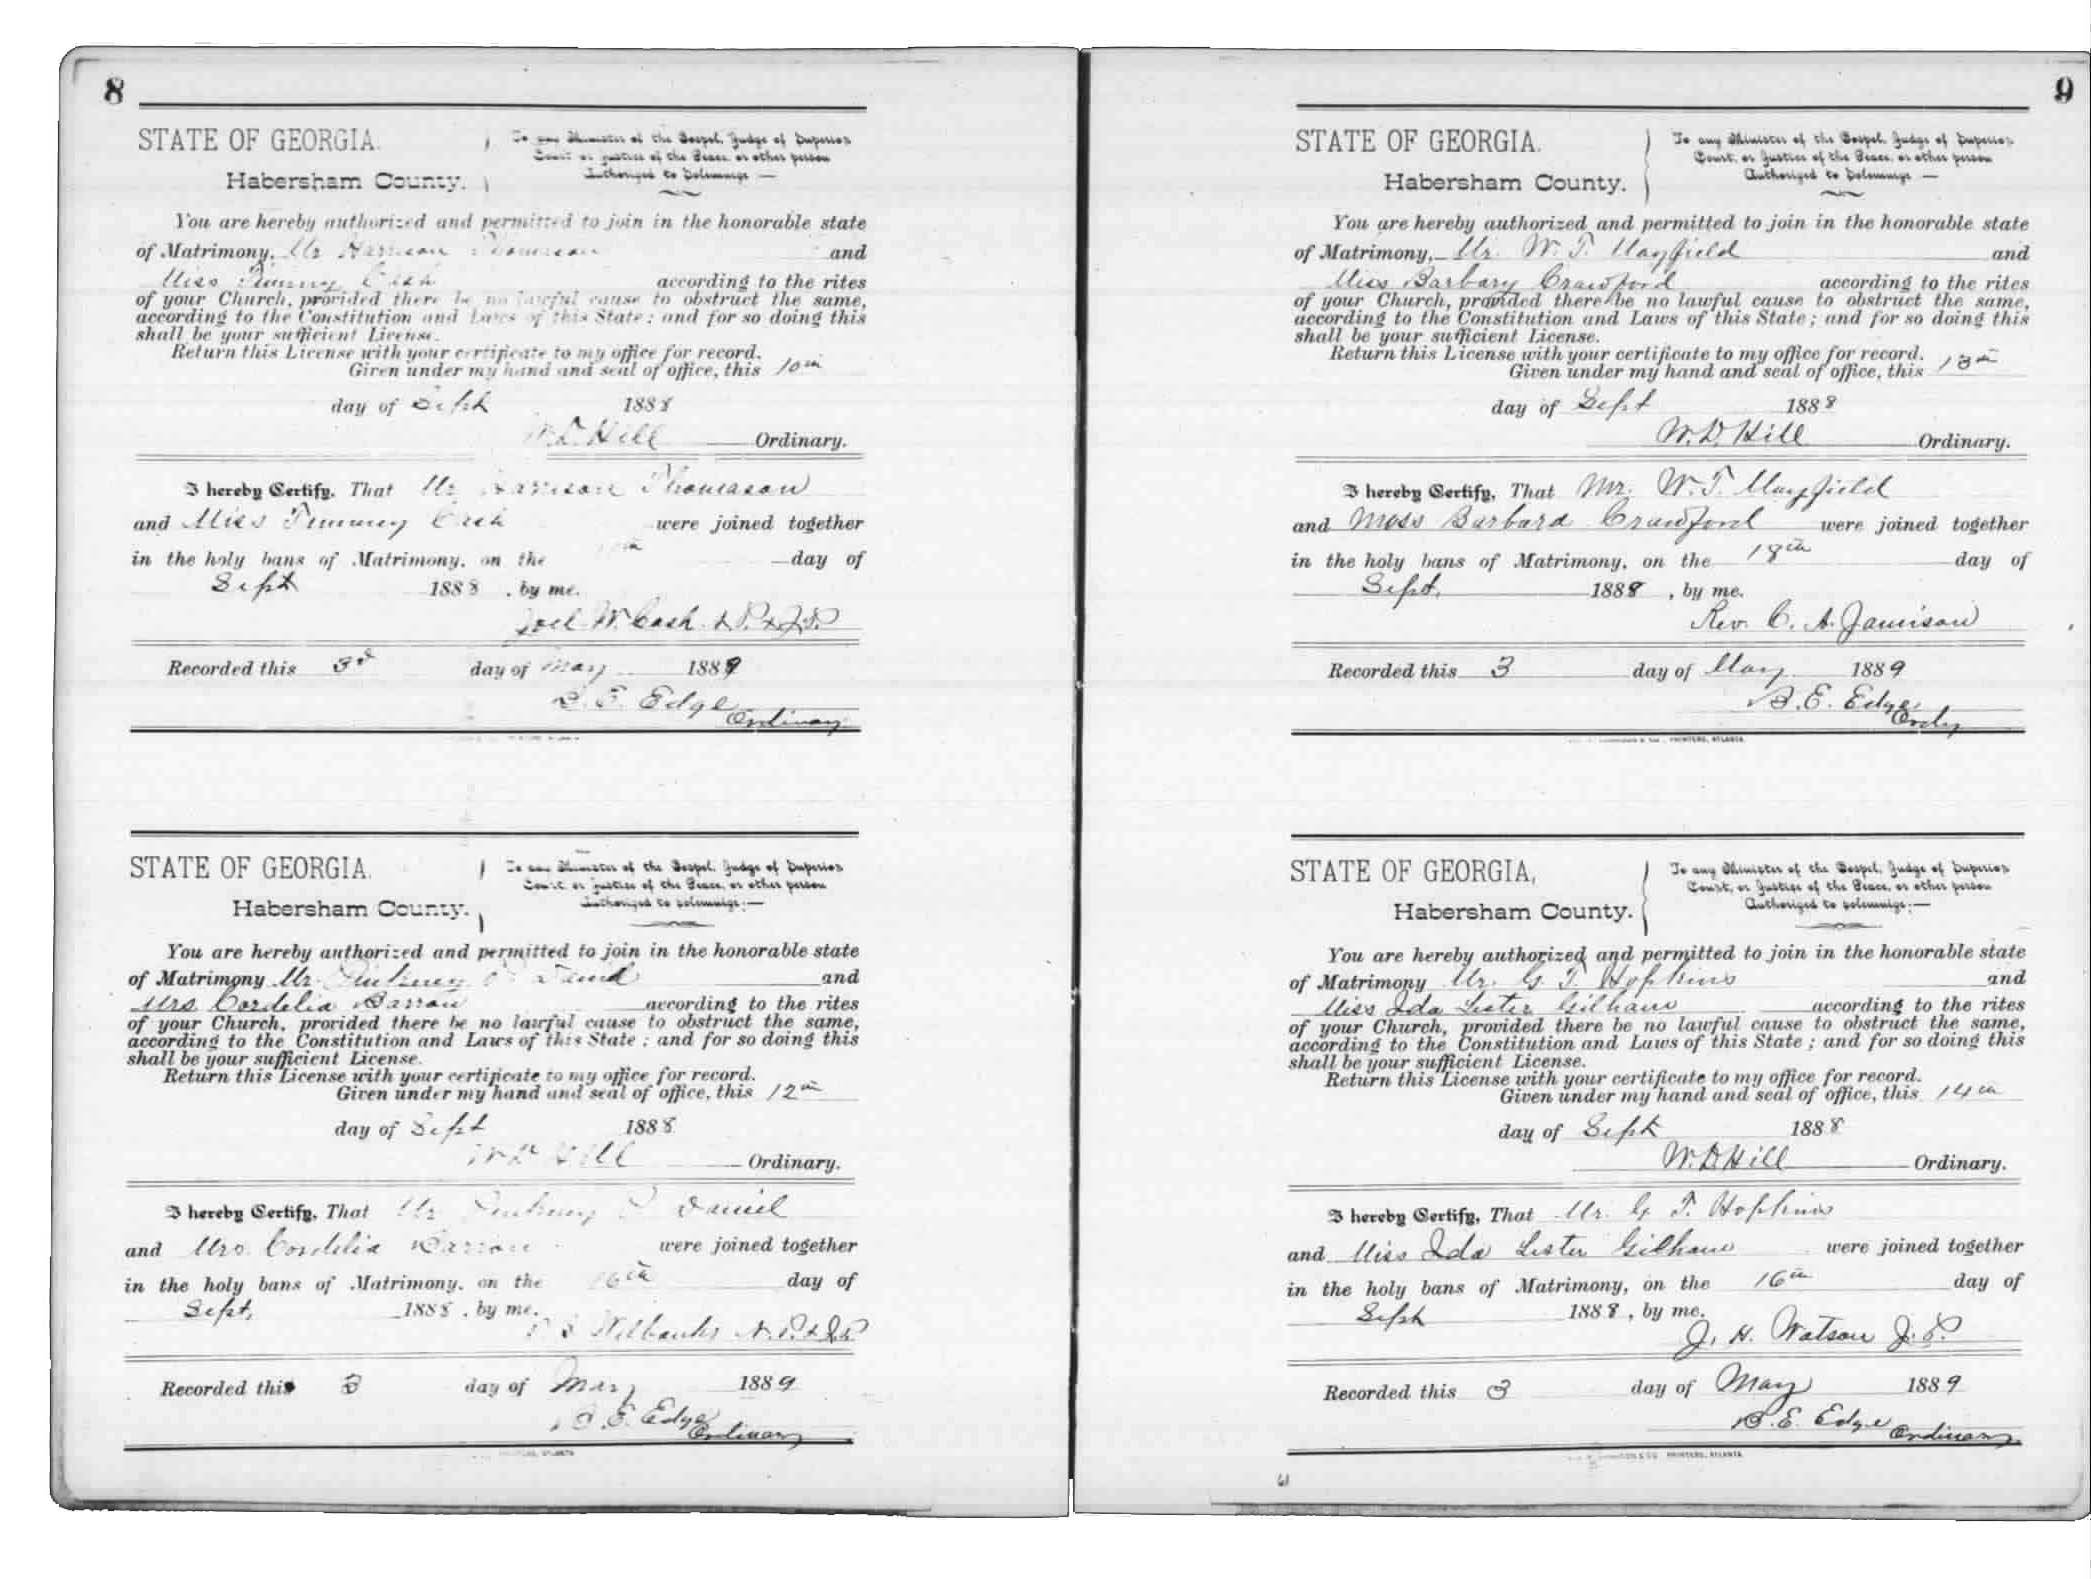 8
STATE OF GEORGIA.
To any Minister of the Gospel, Judge of Superior
Court or Justice of the Peace, or other person
Authorized to Solemnize —
Habersham County.
You are hereby authorized and permitted to join in the honorable state
of Matrimony, Mr Harrison Thomason and
Miss Cash according to the rites
of your Church, provided there be no lawful cause to obstruct the same,
according to the Constitution and Laws of this State; and for so doing this
shall be your sufficient License.
Return this License with your certificate to my office for record.
Given under my hand and seal of office, this 10th
day of Sept 1888
W.D. Hill Ordinary.
I hereby Certify, That Mr Harrison Thomason
and Miss Cash were joined together
in the holy bans of Matrimony, on the day of
Sept 1888, by me.
Joel W. Cash
Recorded this 3d day of May 1889
B. E. Edge
Ordinary
STATE OF GEORGIA.
To any Minister of the Gospel, Judge of Superior
Court or Justice of the Peace, or other person
Authorized to solemnize;—
Habersham County.
You are hereby authorized and permitted to join in the honorable state
of Matrimony Mr Pinkney and
Mrs Cordelia Barron according to the rites
of your Church, provided there be no lawful cause to obstruct the same,
according to the Constitution and Laws of this State; and for so doing this
shall be your sufficient License.
Return this License with your certificate to my office for record.
Given under my hand and seal of office, this 12th
day of Sept 1888
W D Hill Ordinary.
I hereby Certify, That Mr Pinkney Daniel
and Mrs. Cordelia Barron were joined together
in the holy bans of Matrimony, on the 16th day of
Sept, 1888, by me.
Wilbanks N.P. & J.P.
Recorded this 3 day of May 1889
B. E. Edge
Ordinary
9
STATE OF GEORGIA.
To any Minister of the Gospel, Judge of Superior
Court, or Justice of the Peace, or other person
Authorized to Solemnize —
Habersham County.
You are hereby authorized and permitted to join in the honorable state
of Matrimony, Mr. W. T. Mayfield and
Miss Barbary Crawford according to the rites
of your Church, provided there be no lawful cause to obstruct the same,
according to the Constitution and Laws of this State; and for so doing this
shall be your sufficient License.
Return this License with your certificate to my office for record.
Given under my hand and seal of office, this 13th
day of Sept 1888
W. D. Hill Ordinary.
I hereby Certify, That Mr. W. T. Mayfield
and Moss Barbara Crawford were joined together
in the holy bans of Matrimony, on the 18th day of
Sept, 1888, by me.
Rev. C. A. Jamison
Recorded this 3 day of May 1889
B. E. Edge
Ordy
PRINTERS, ATLANTA.
STATE OF GEORGIA,
To any Minister of the Gospel, Judge of Superior
Court, or Justice of the Peace, or other person
Authorized to solemnize;—
Habersham County.
You are hereby authorized and permitted to join in the honorable state
of Matrimony Mr. G. T. Hopkins and
Miss Ida Lester Gilham according to the rites
of your Church, provided there be no lawful cause to obstruct the same,
according to the Constitution and Laws of this State; and for so doing this
shall be your sufficient License.
Return this License with your certificate to my office for record.
Given under my hand and seal of office, this 14th
day of Sept 1888
W. D. Hill Ordinary.
I hereby Certify, That Mr. G. T. Hopkins
and Miss Ida Lester Gilham were joined together
in the holy bans of Matrimony, on the 16th day of
Sept 1888, by me.
J. H. Watson J. P.
Recorded this 3 day of May 1889
B. E. Edge
Ordinary
PRINTERS, ATLANTA.